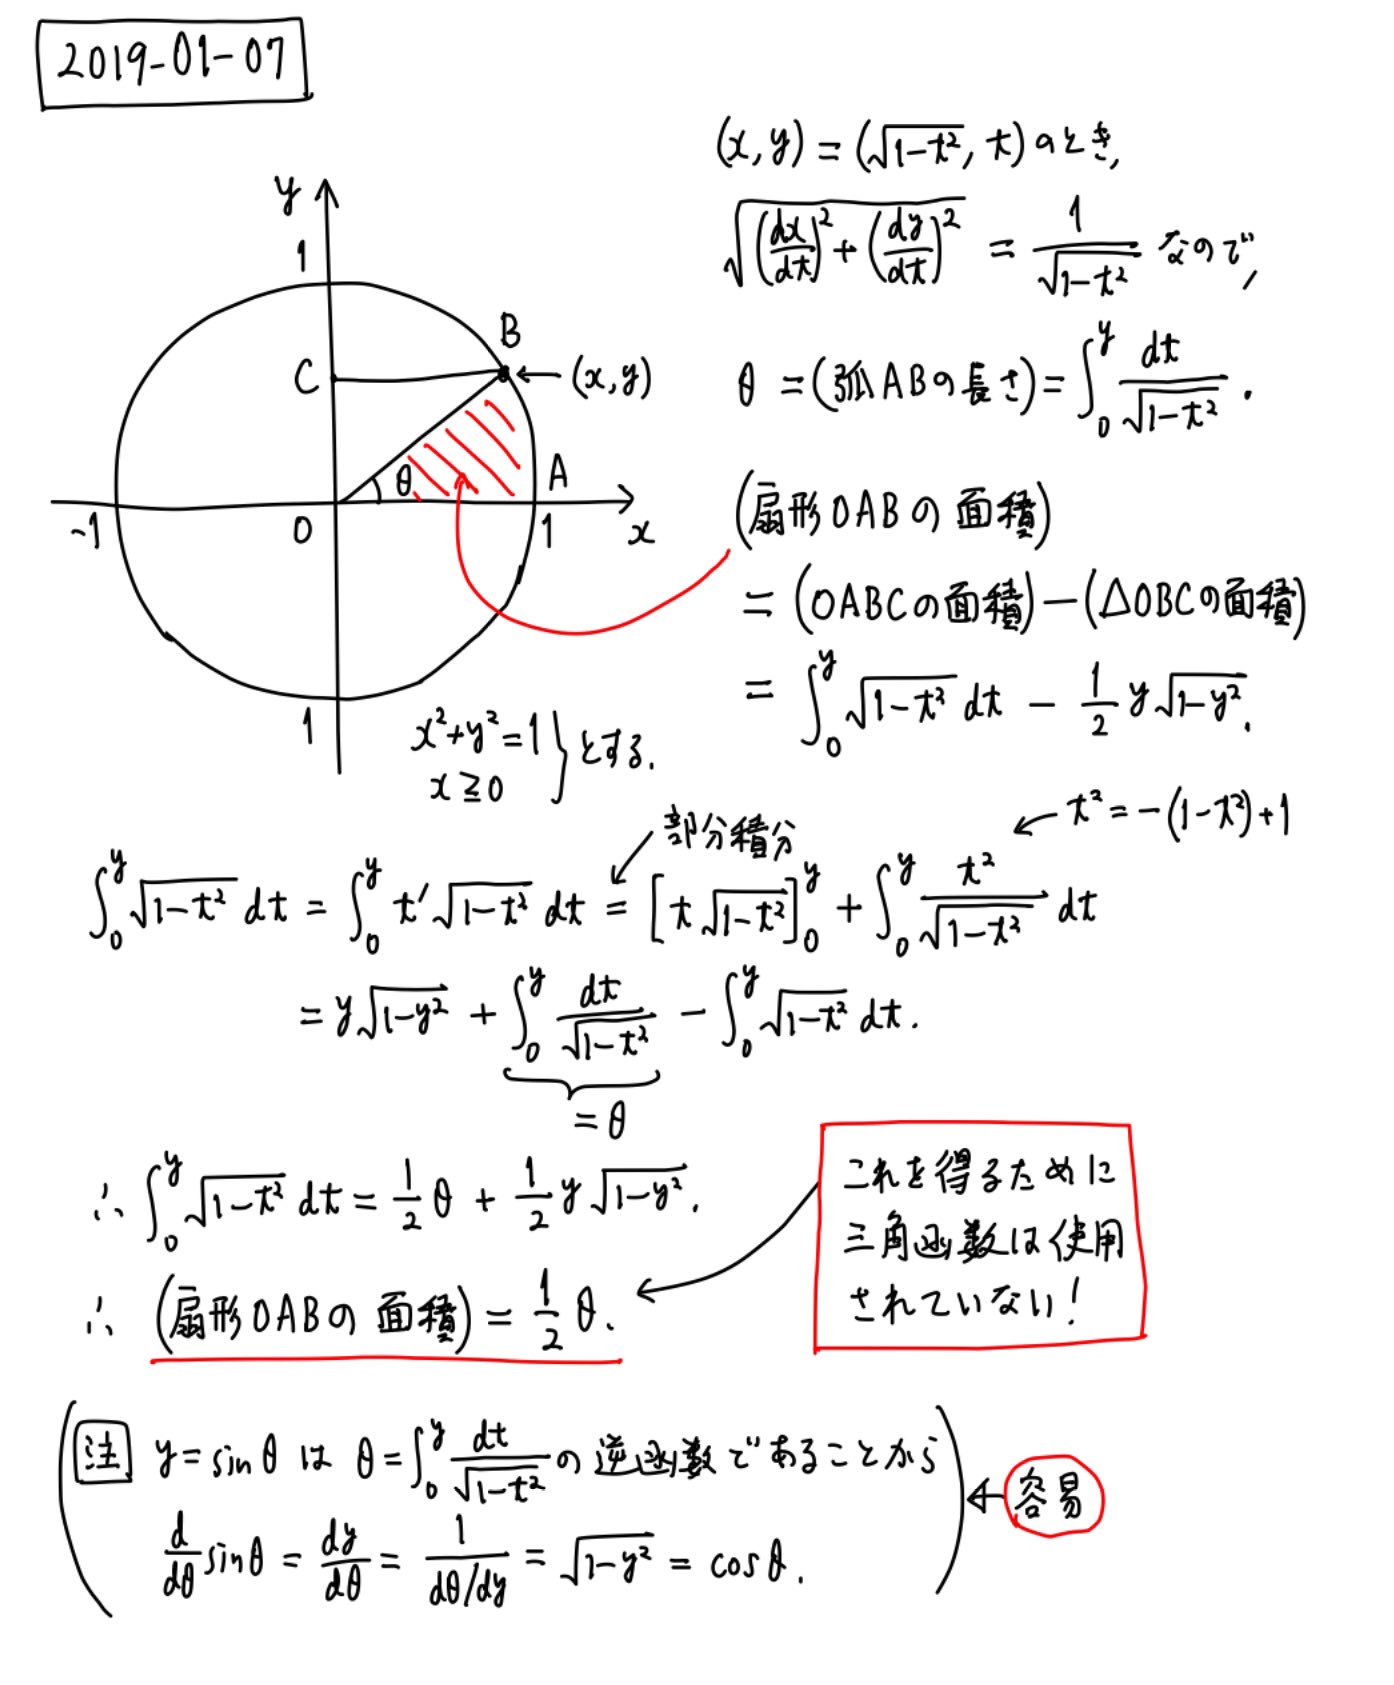 2019-01-07
(x, y) = (√(1-t²), t) のとき,
√((dx/dt)² + (dy/dt)²) = 1/√(1-t²) なので,
θ = (弧ABの長さ) = ∫₀^y dt/√(1-t²) .
y
1
B
C
← (x, y)
θ
A
-1
O
1
x
1
(扇形OABの面積)
= (OABCの面積) - (△OBCの面積)
= ∫₀^y √(1-t²) dt - 1/2 y√(1-y²).
x²+y²=1
x≧0 } とする.
部分積分
t² = -(1-t²)+1
∫₀^y √(1-t²) dt = ∫₀^y t′√(1-t²) dt = [t√(1-t²)]₀^y + ∫₀^y t²/√(1-t²) dt
= y√(1-y²) + ∫₀^y dt/√(1-t²) - ∫₀^y √(1-t²) dt.
= θ
∴ ∫₀^y √(1-t²) dt = 1/2 θ + 1/2 y√(1-y²).
∴ (扇形OABの面積) = 1/2 θ.
これを得るために
三角函数は使用
されていない!
(注 y = sinθ は θ = ∫₀^y dt/√(1-t²) の逆函数であることから
d/dθ sinθ = dy/dθ = 1/(dθ/dy) = √(1-y²) = cosθ.)
← 容易